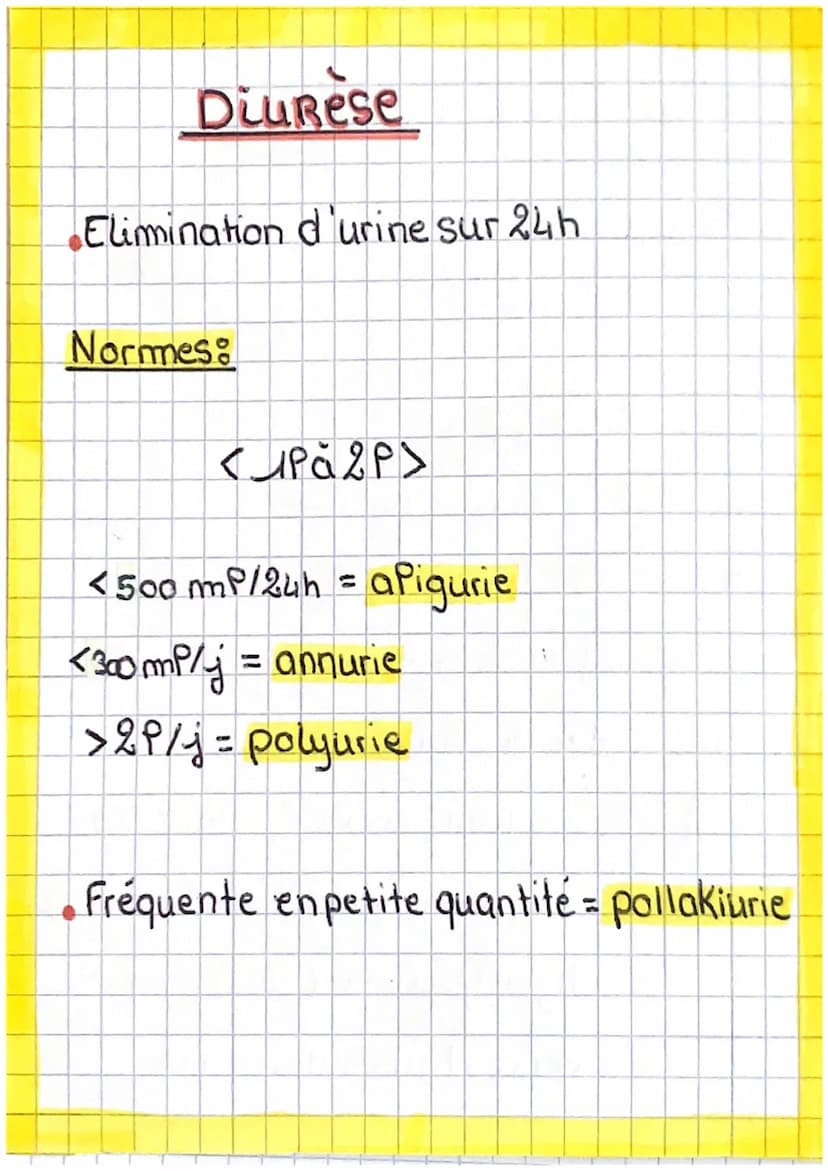 Diurèse
• Elimination d'urine sur 24h
Normes :
< 1l à 2l >
< 500 ml/24h = aligurie
< 300 ml/j = annurie
> 2l/j = polyurie
• Fréquente en petite quantité = pollakiurie